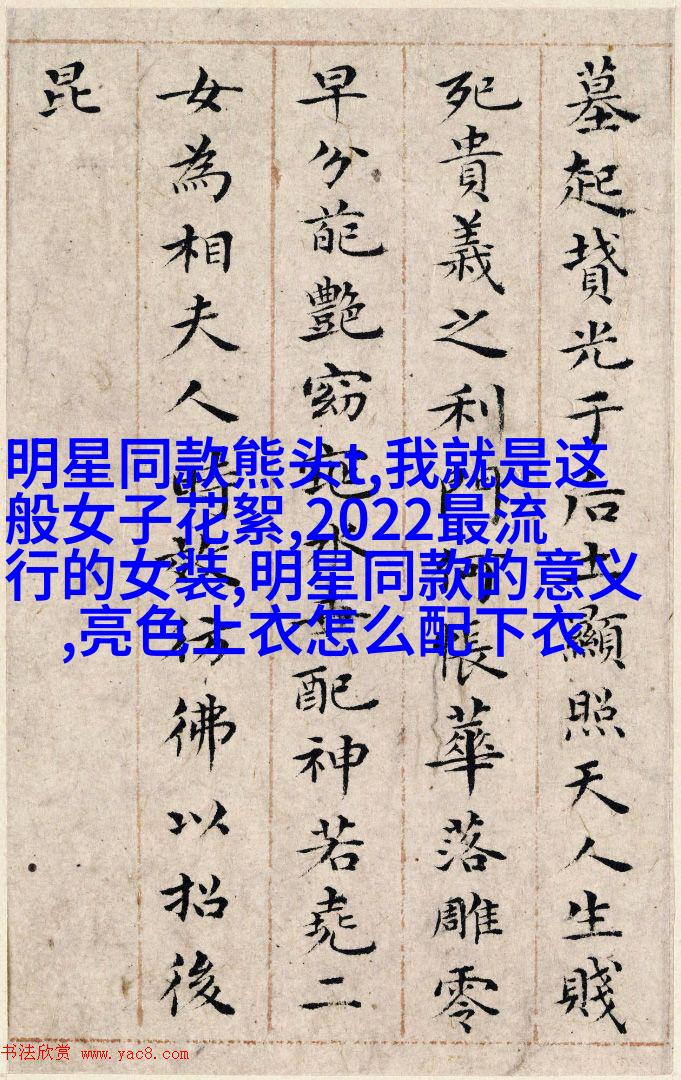 墓起墳光于后土顯照天人生賤
死貴義之利門何悵華落雕零
早分葩艷窈窕永世配神若堯二
女為相夫人時效彷彿以招後
昆
明星同款熊头t,我就是这
般女子花絮,2022最流
行的女装,明星同款的意义
,亮色上衣怎么配下衣
书法欣赏 www.yac8.com